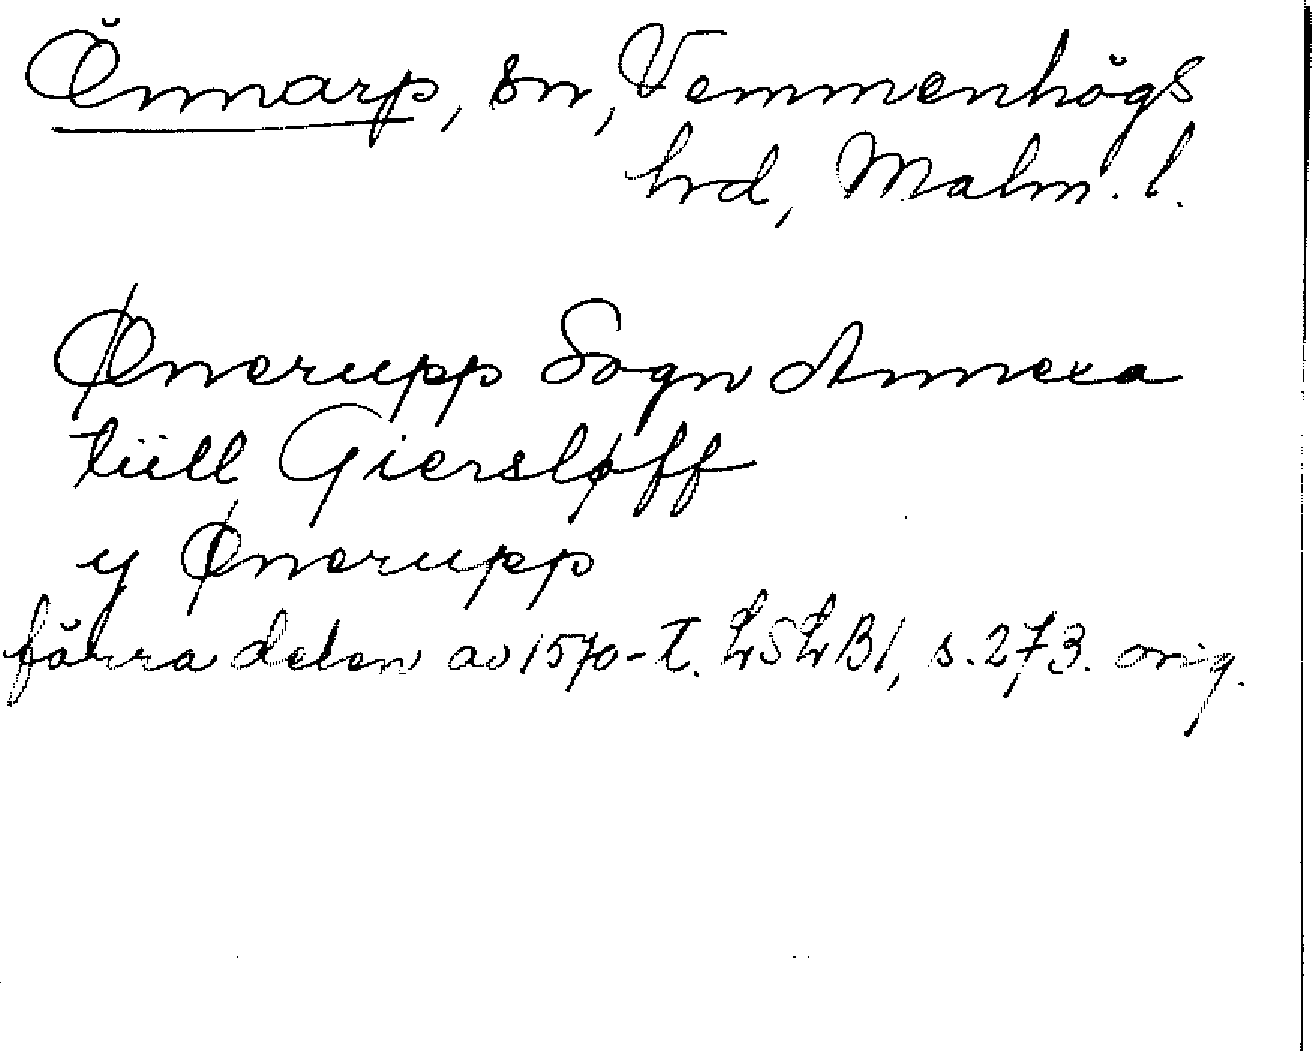 Önnarp, sn, Vemmenhögs
hrd, Malm. l.
Ønerupp Sogn Annexa
tüll Giersløff
y Ønerupp
förra delen av 1570-t. LSLB1, s. 273. orig.